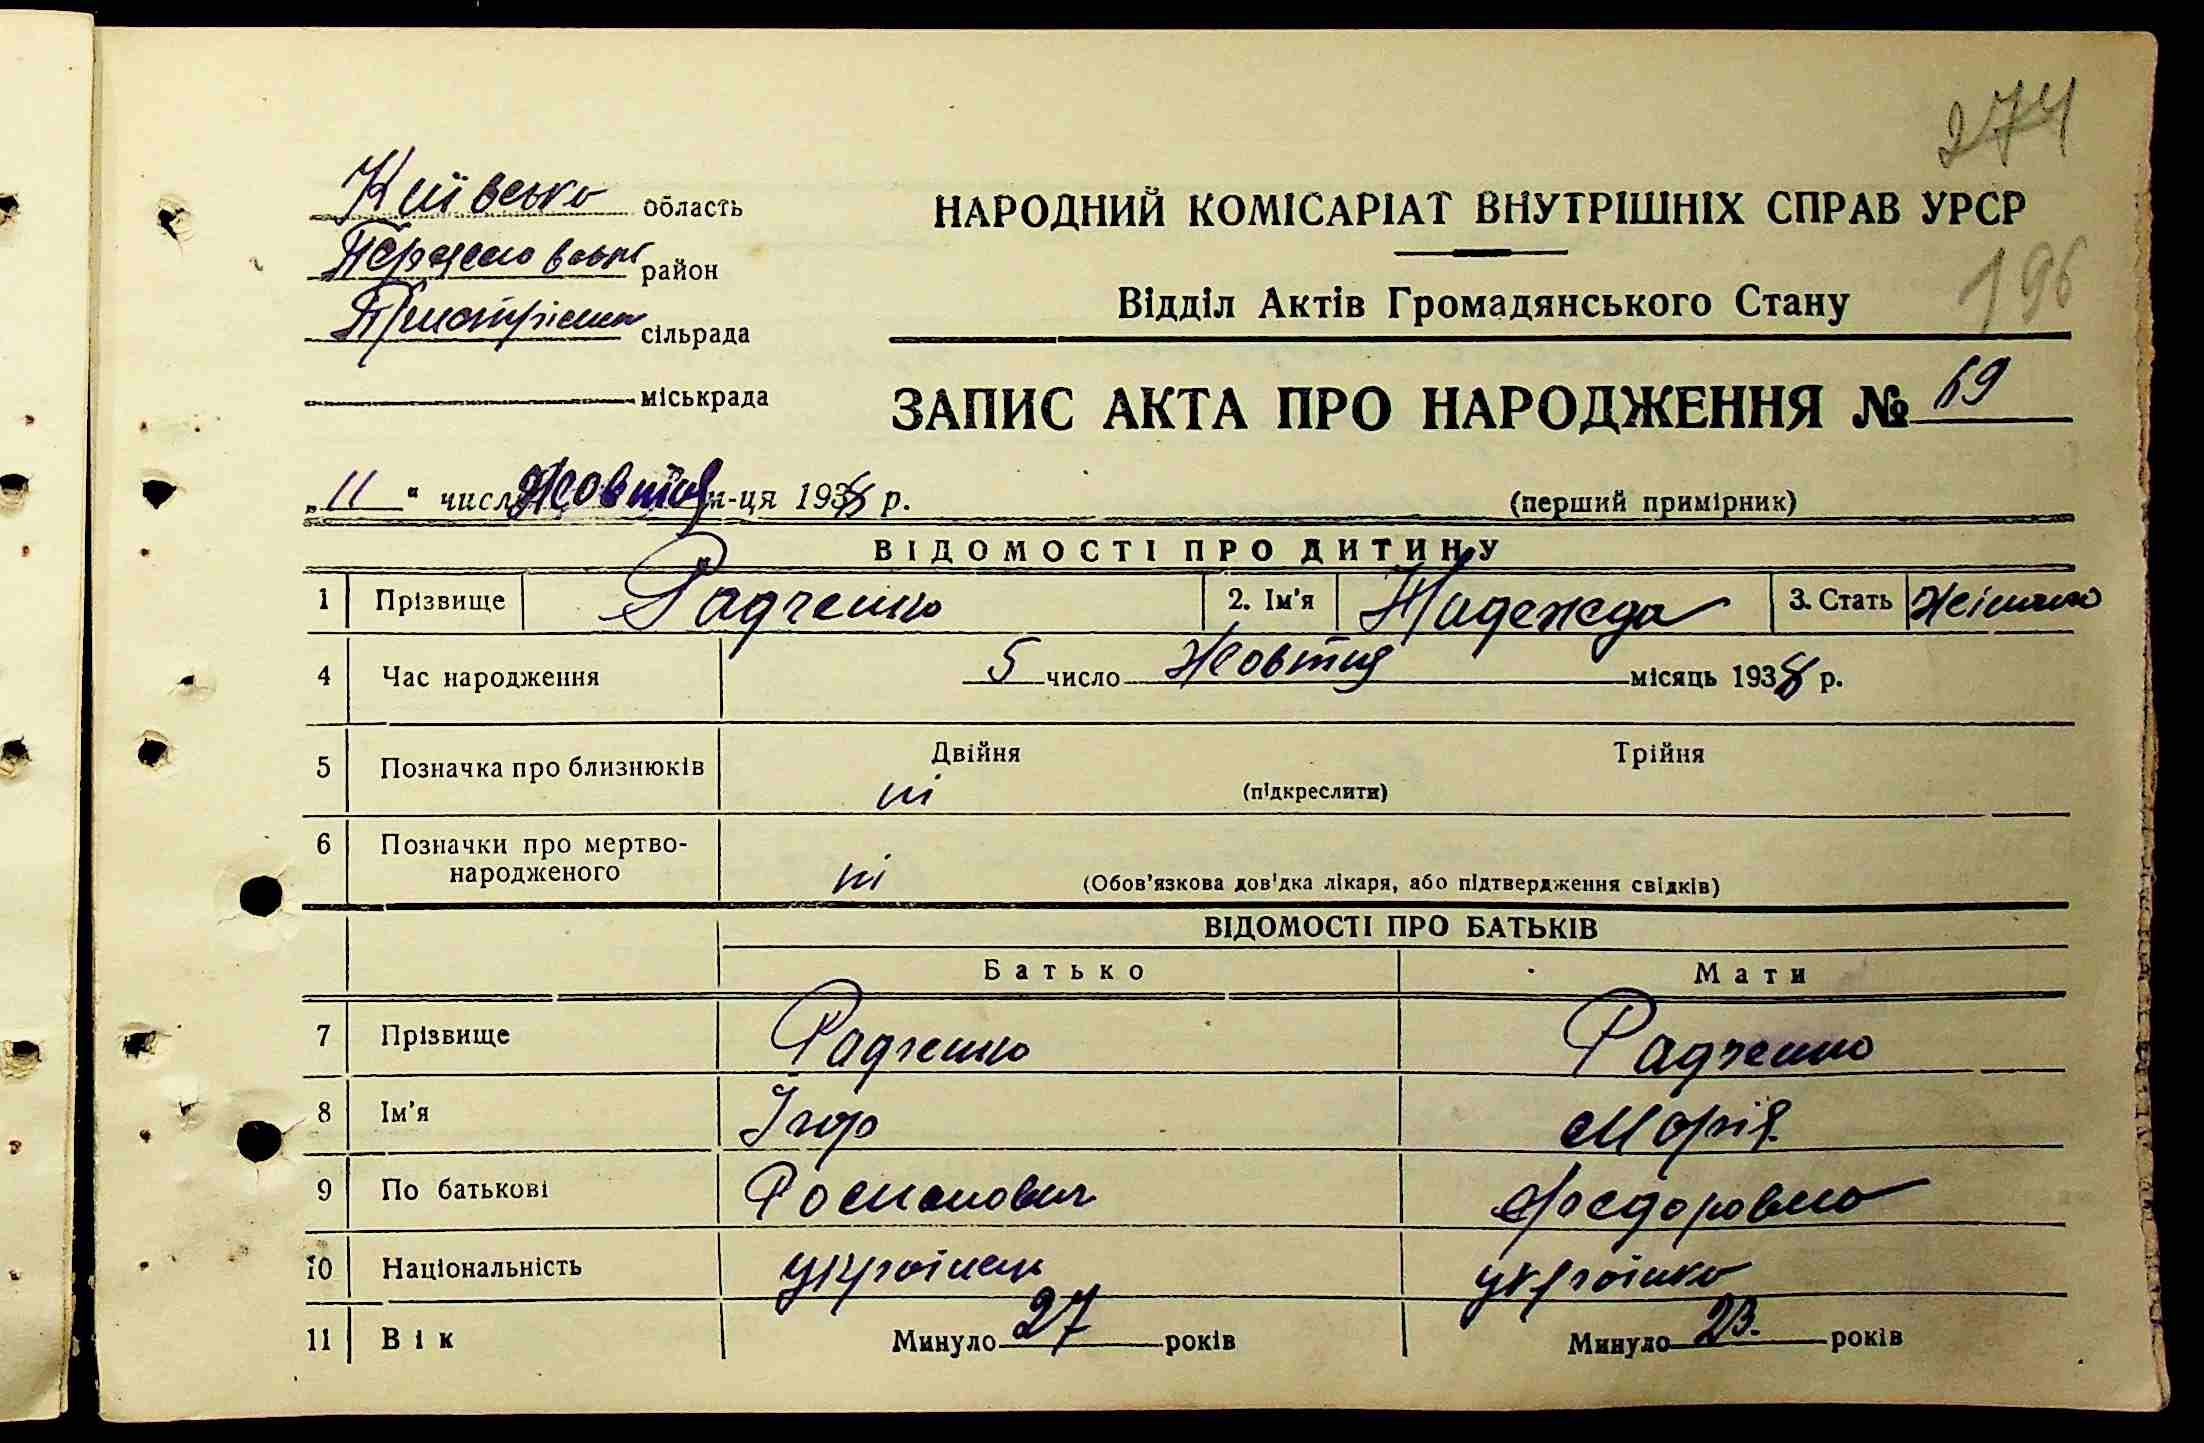 274
Київсько область
НАРОДНИЙ КОМІСАРІАТ ВНУТРІШНІХ СПРАВ УРСР
район
196
Відділ Актів Громадянського Стану
сільрада
міськрада
ЗАПИС АКТА ПРО НАРОДЖЕННЯ № 69
„11“ числ Жовтня м-ця 1938 р.
(перший примірник)
ВІДОМОСТІ ПРО ДИТИНУ
1 Прізвище Радченко 2. Ім'я Надежда 3. Стать Жіночо
4 Час народження 5 число Жовтня місяць 1938 р.
5 Позначка про близнюків Двійня Трійня
ні (підкреслити)
6 Позначки про мертво-
народженого ні (Обов'язкова дов'дка лікаря, або підтвердження свідків)
ВІДОМОСТІ ПРО БАТЬКІВ
Батько Мати
7 Прізвище Радченко Радченко
8 Ім'я Ігор Марія
9 По батькові Романович Федоровна
10 Національність українець українко
11 Вік Минуло 27 років Минуло 23. років